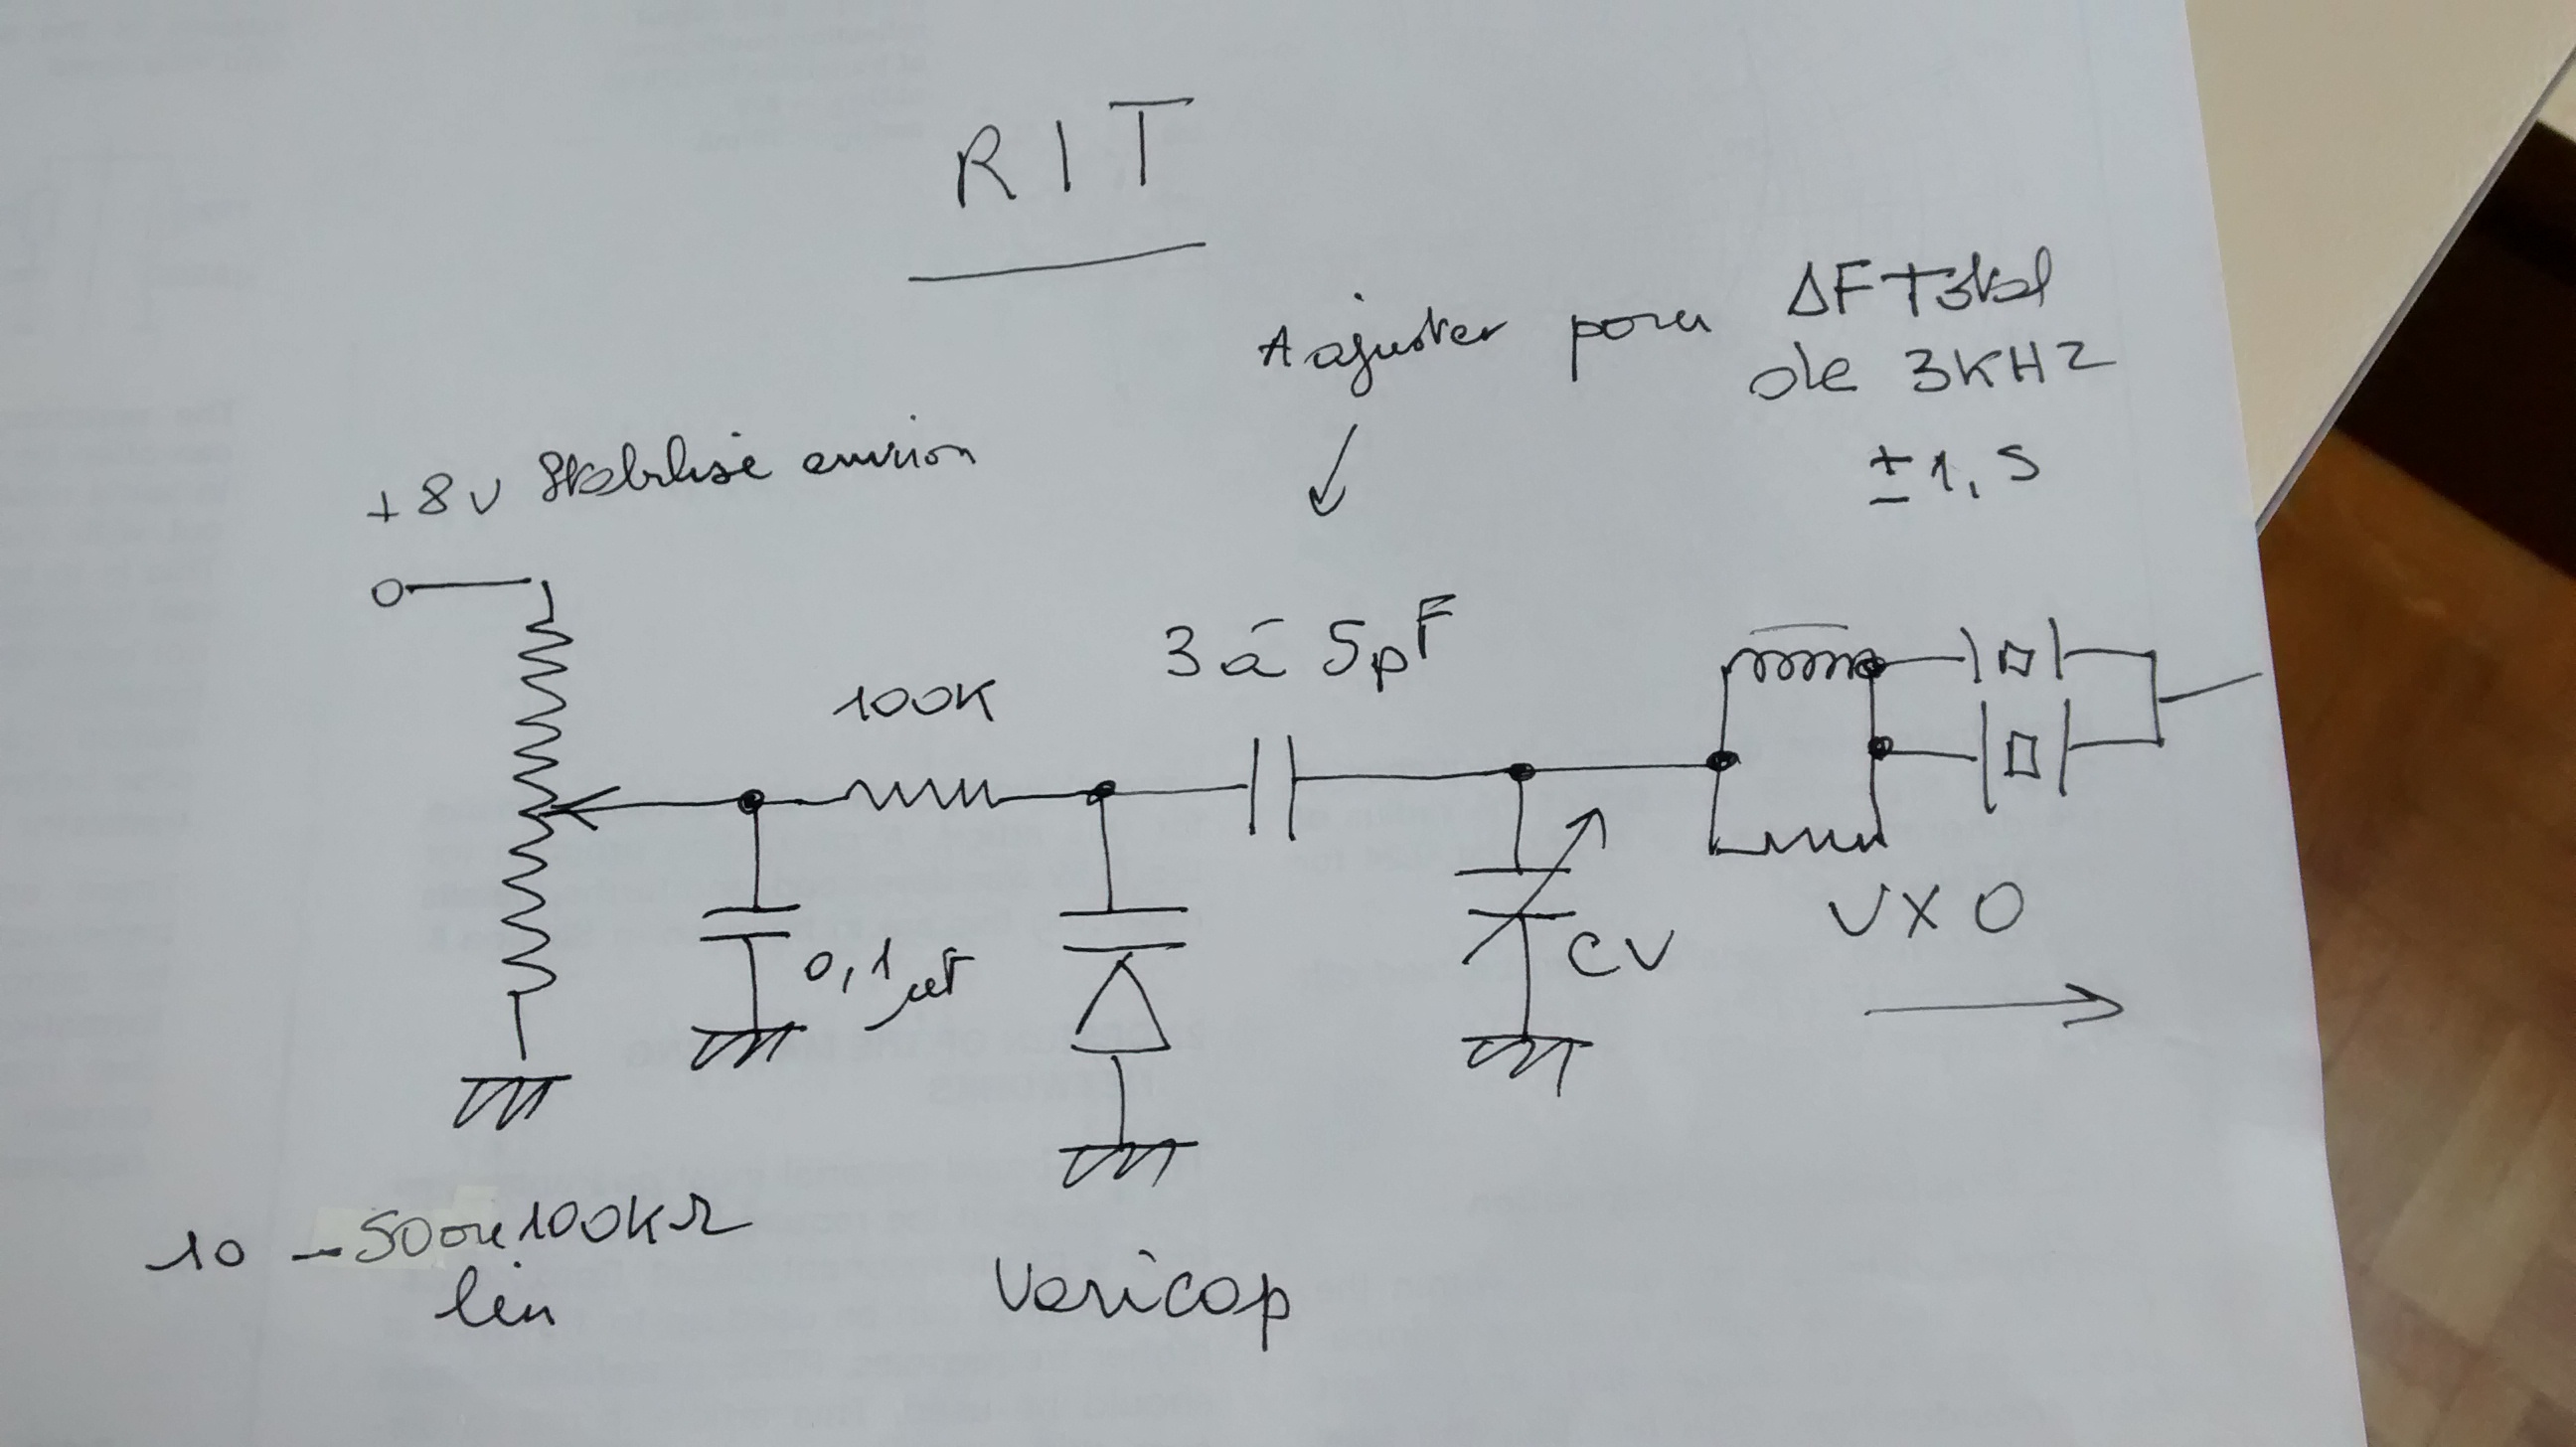 RIT
A ajuster pour ΔF Total
de 3KHz
± 1,5
+8v Stabilisé environ
3 à 5pF
100K
0,1µF
CV
VXO
10 - 50 ou 100kΩ
lin
Varicap